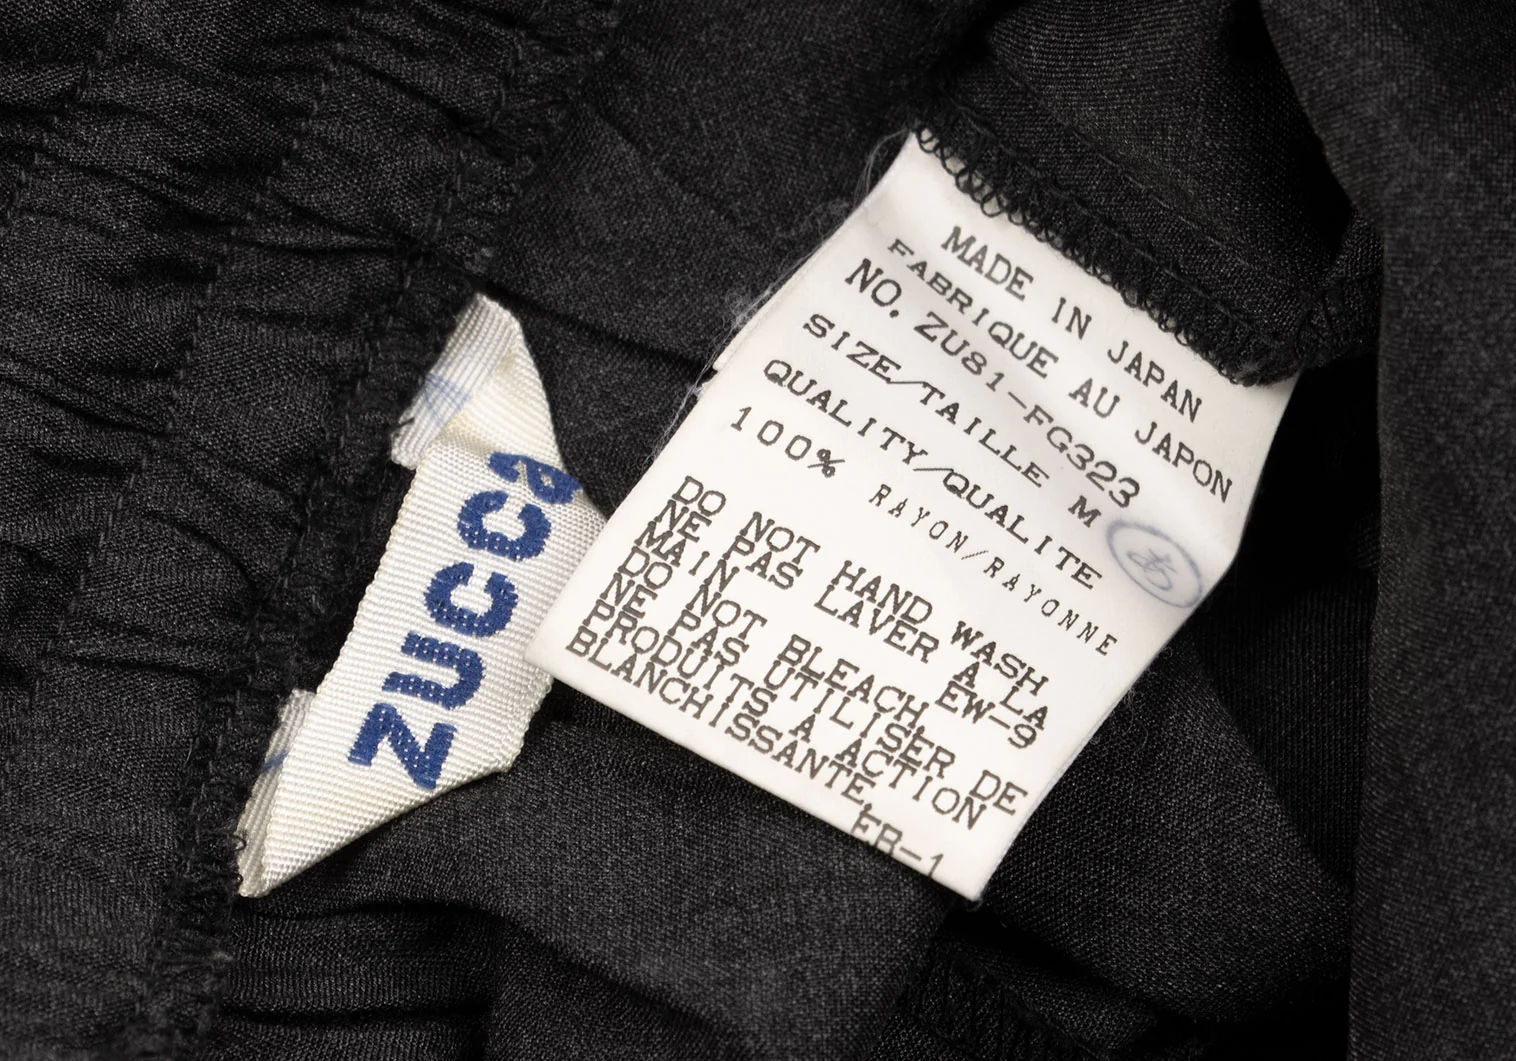 zucca
MADE IN JAPAN
FABRIQUE AU JAPON
NO. ZU81-FG323
SIZE/TAILLE M
QUALITY/QUALITE
100% RAYON/RAYONNE
あ
DO NOT HAND WASH
NE PAS LAVER A LA
MAIN EW-9
DO NOT BLEACH,
NE PAS UTILISER DE
PRODUITS A ACTION
BLANCHISSANTE,
EB-1